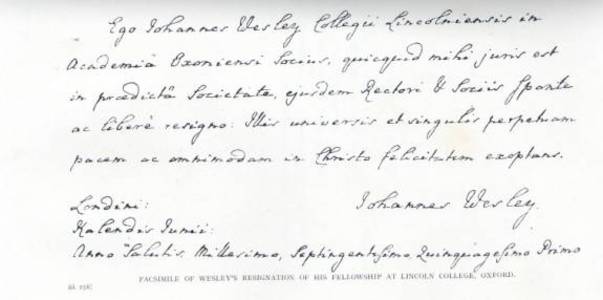 Ego Iohannes Wesley Collegii Lincolniensis in
Academiâ Oxoniensi Socius, quicquid mihi juris est
in prædictâ Societate, ejusdem Rectori & Sociis sponte
ac liberè resigno: Illis universis et singulis perpetuam
pacem ac omnimodam in Christo felicitatem exoptans.
Londini:
Iohannes Wesley.
Kalendis Iunii:
Anno Salutis, Millesimo, Septingentesimo, Quinquagesimo Primo
FACSIMILE OF WESLEY'S RESIGNATION OF HIS FELLOWSHIP AT LINCOLN COLLEGE, OXFORD.